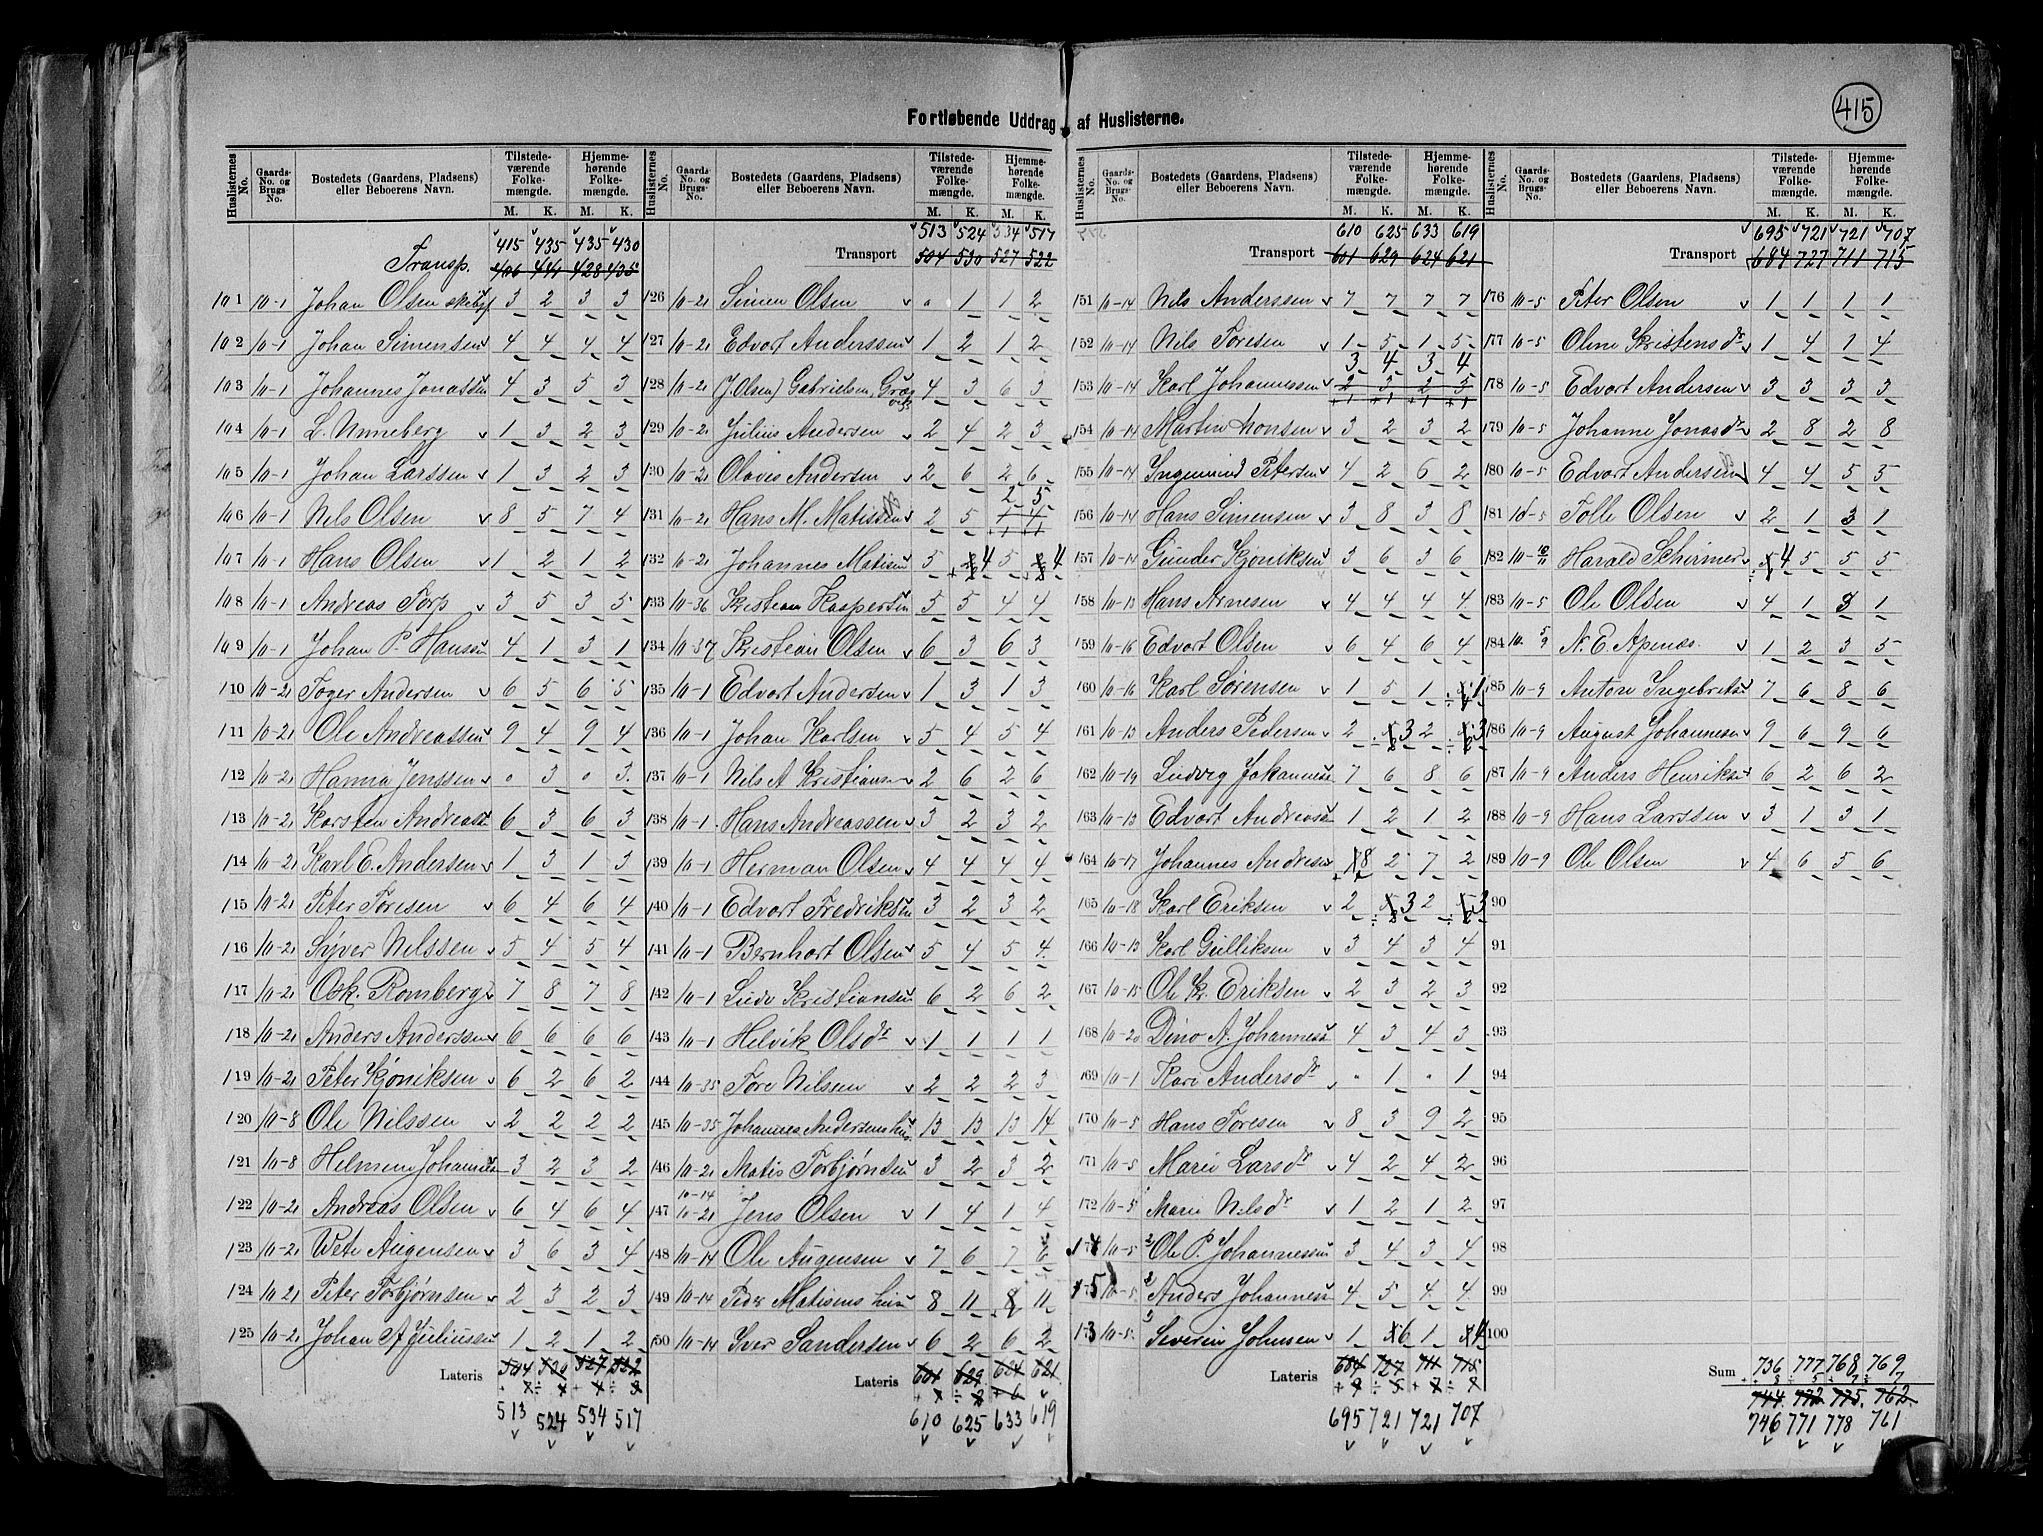 415
Fortløbende Uddrag af Huslisterne.
Huslisternes No. | Gaards-No. og Brugs-No. | Bostedets (Gaardens, Pladsens) eller Beboerens Navn. | Tilstedeværende Folkemængde. M. K. | Hjemmehørende Folkemængde. M. K.
415 435 435 430
Transp. 406 441 428 435
101 10-1 Johan Olsen skibsf 3 2 3 3
102 10-1 Johan Simensen 4 4 4 4
103 10-1 Johannes Jonassen 4 3 5 3
104 10-1 L. Unneberg 1 3 2 3
105 10-1 Johan Larssen 1 3 2 3
106 10-1 Nils Olsen 8 5 7 4
107 10-1 Hans Olsen 1 2 1 2
108 10-1 Andreas Torp 3 5 3 5
109 10-1 Johan P. Hanssen 4 1 3 1
110 10-21 Toger Andersen 6 5 6 5
111 10-21 Ole Andreassen 9 4 9 4
112 10-21 Hanna Jenssen 0 3 0 3
113 10-21 Karsten Andreassen 6 3 6 3
114 10-21 Karl E. Andersen 1 3 1 3
115 10-21 Peter Toresen 6 4 6 4
116 10-21 Syver Nilssen 5 4 5 4
117 10-21 Osk. Romberg 7 8 7 8
118 10-21 Anders Anderssen 6 6 6 6
119 10-21 Peter Kjøniksen 6 2 6 2
120 10-8 Ole Nilssen 2 2 2 2
121 10-8 Helmen Johannesen 3 2 3 2
122 10-21 Andreas Olsen 6 4 6 4
123 10-21 Wete Augensen 3 6 3 4
124 10-21 Peter Torbjørnsen 2 3 2 3
125 10-21 Johan A Juliussen 1 2 1 2
Lateris 504 530 527 522
513 524 534 517
Huslisternes No. | Gaards-No. og Brugs-No. | Bostedets (Gaardens, Pladsens) eller Beboerens Navn. | Tilstedeværende Folkemængde. M. K. | Hjemmehørende Folkemængde. M. K.
513 524 534 517
Transport 504 530 527 522
126 10-21 Simen Olsen 0 1 1 2
127 10-21 Edvart Anderssen 1 2 1 2
128 10-21 (J. Olsen) Gabrielsen, Græsvik 4 3 6 3
129 10-21 Julius Andersen 2 4 2 3
130 10-21 Olavis Andersen 2 6 2 6
2 5
131 10-21 Hans M. Matissen 2 5 1 4
132 10-21 Johannes Matisen 5 4 5 4
133 10-36 Kristian Kaspersen 5 5 4 4
134 10-37 Kristian Olsen 6 3 6 3
135 10-1 Edvart Andersen 1 3 1 3
136 10-1 Johan Karlsen 5 4 5 4
137 10-1 Nils A Kristiansen 2 6 2 6
138 10-1 Hans Andreassen 3 2 3 2
139 10-1 Herman Olsen 4 4 4 4
140 10-1 Edvart Fredriksen 3 2 3 2
141 10-1 Bernhart Olsen 5 4 5 4
142 10-1 Kristiansen 6 2 6 2
143 10-1 Helvik Olsdr 1 1 1 1
144 10-35 Tore Nilsen 2 2 2 3
145 10-35 Johannes Andersens hus 13 13 13 14
146 10-21 Matis Torbjørnsen 3 2 3 2
10-14
147 10-21 Jens Olsen 1 4 1 4
148 10-14 Ole Augensen 7 6 7 6
149 10-14 Peder Matisens hus 8 11 8 11
150 10-14 Iver Sandersen 6 2 6 2
Lateris 601 629 624 621
610 625 633 619
Huslisternes No. | Gaards-No. og Brugs-No. | Bostedets (Gaardens, Pladsens) eller Beboerens Navn. | Tilstedeværende Folkemængde. M. K. | Hjemmehørende Folkemængde. M. K.
610 625 633 619
Transport 601 629 624 621
151 10-14 Nils Anderssen 7 7 7 7
152 10-14 Nils Toresen 1 5 1 5
3 4 3 4
153 10-14 Karl Johannessen 2 3 2 5
+1 +1 +1 +1
154 10-14 Martin Monsen 3 2 3 2
155 10-14 Ingemund Petersen 4 2 6 2
156 10-14 Hans Simensen 3 8 3 8
157 10-14 Gunder Kjøniksen 3 6 3 6
158 10-13 Hans Arnesen 4 4 4 4
159 10-16 Edvart Olsen 6 4 6 4
160 10-16 Karl Sørensen 1 5 1 1
161 10-13 Anders Pedersen 2 3 2 3
162 10-19 Ludvig Johannessen 7 6 8 6
163 10-13 Edvart Andreassen 1 2 1 2
164 10-17 Johannes Andresen 8 2 7 2
165 10-18 Karl Eriksen 2 3 2 3
166 10-13 Karl Gulliksen 3 4 3 4
167 10-15 Ole Kr. Eriksen 2 3 2 3
168 10-20 Dino A. Johannessen 4 3 4 3
169 10-1 Kari Andersdr 0 1 0 1
170 10-5 Hans Toresen 8 3 9 2
171 10-5 Marie Larsdr 4 2 4 2
172 10-5 Marie Nilsdr 1 2 1 2
174 10-5 Ole P. Johannessen 3 4 3 4
175 10-5 Anders Johannessen 4 5 4 4
173 10-5 Severin Johnsen 1 6 1 4
Lateris 684 727 711 715
695 721 721 707
Huslisternes No. | Gaards-No. og Brugs-No. | Bostedets (Gaardens, Pladsens) eller Beboerens Navn. | Tilstedeværende Folkemængde. M. K. | Hjemmehørende Folkemængde. M. K.
695 721 721 707
Transport 684 727 711 715
176 10-5 Peter Olsen 1 1 1 1
177 10-5 Oline Kristensdr 1 4 1 4
178 10-5 Edvart Andersen 3 3 3 3
179 10-5 Johanne Jonasdr 2 8 2 8
180 10-5 Edvart Andersen 4 4 5 5
181 10-5 Tolle Olsen 2 1 3 1
182 10-10/11 Harald Schirmer 4 5 5 5
183 10-5 Ole Olsen 4 1 3 1
184 10-5/9 N. E. Apenæs 1 2 3 5
185 10-9 Anton Ingebretsen 7 6 8 6
186 10-9 August Johannesen 9 6 9 6
187 10-9 Anders Henriksen 6 2 6 2
188 10-9 Hans Larssen 3 1 3 1
189 10-9 Ole Olsen 4 6 5 6
90
91
92
93
94
95
96
97
98
99
100
Sum 736 777 768 769
744 772 775 762
746 771 778 761